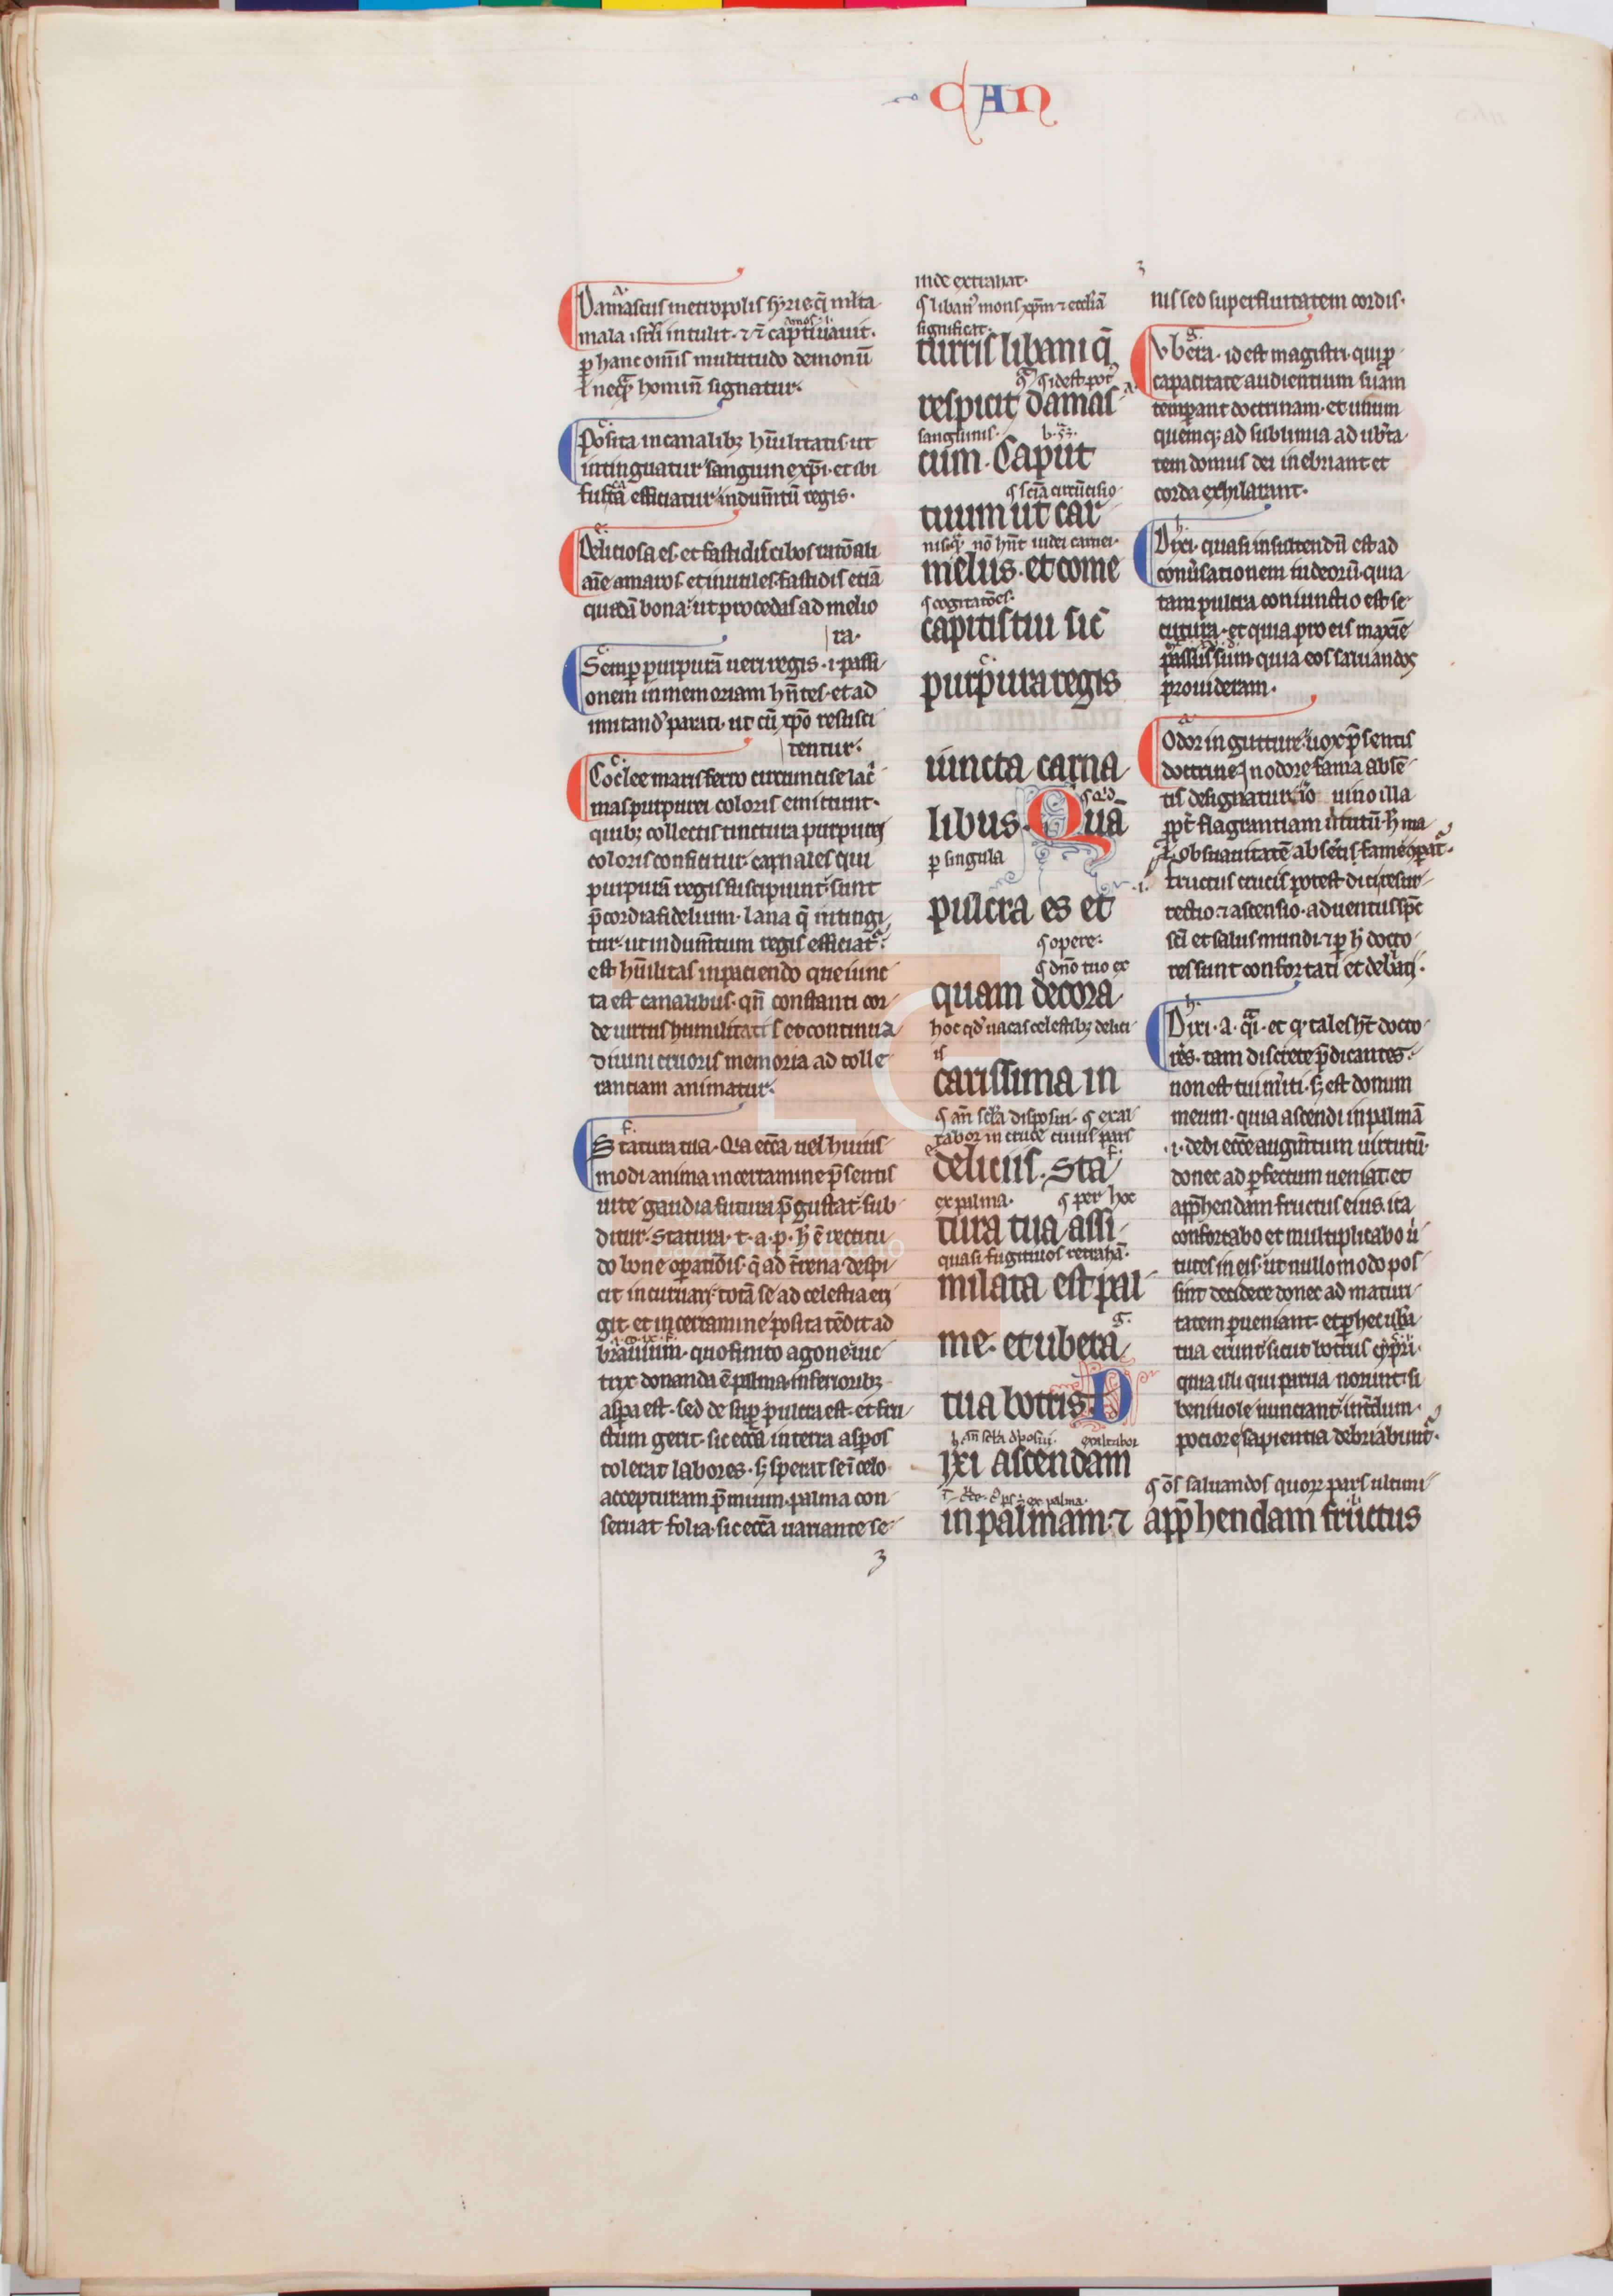 CAN
Damascus metropolis syrie q̄ m̄lta
mala isr̄li intulit· ⁊ eā captiuauit·
ꝑ hanc om̄is multitudo demonū
hominū signatur·
Posita in canalibꝫ hūilitatis· ut
intinguatur sanguine xp̄i· et ibi
efficiatur indum̄tū regis·
Deliciosa es· et fastidis cibos
aīe amaros et inutiles· fastidis etiā
quedā bona· ut procedas ad melio
ra·
Semꝑ purpurā ueri regis· i· passi
onem in memoriam hn̄tes· et ad
imitand᷒ parati· ut cū xp̄o resusci
tentur·
Coclee maris ferro circuncise lac̄
mas purpurei coloris emittunt·
quibꝫ collectis tinctura purpurei
coloris conficitur· carnales qui
purpurā regis suscipiunt· sunt
p̄cordia fidelium· lana q̄ intingi
tur· ut indum̄tum regis efficiat᷒·
est hūilitas in paciendo que iunc
ta est canalibus· qn̄ constanti cor
de uirtus humilitatis et continua
diuini cruoris memoria ad tolle
rantiam animatur·
Statura tua· Q̄a ecc̄a uel huius
modi anima in certamine p̄sentis
uite gaudia futura p̄gustat· sub
ditur· statura· t· a· p· h̄ ē rectitu
do bone oꝑatiōis· q̄ ad t̄rena despi
cit incuruari· totā se ad celestia eri
git· et in certamine posita tēdit ad
brauium· quo finito agone uic
trix donanda ē palma inferioribꝫ
aspa est· sed desuꝑ pulcra est· et fru
ctum gerit· sic ecc̄a in terra aspos
tolerat labores· sꝫ sperat se ī celo
accepturam p̄mium· palma con
seruat folia· sic ecc̄a uariante se
inde extrahat·
ꝯ liban᷒ mons xp̄m ⁊ eccl̄iā
significat·
turris libani q̄
respicit damas
sanguinis·
cum· Caput
tuum ut car
melus· et come
ꝯ cogitatōes·
capitis tui sic̄
purpura regis
uincta cana
libus· Quā
ꝑ singula
pulcra es et
ꝯ opere·
ꝯ dn̄o tuo ex
quam decora
hoc qd᷒ uacas celestibꝫ delici
is
carissima in
deliciis· Sta
ex palma· ꝯ per hoc
tura tua assi
quasi fugitiuos retrahā·
milata est pal
me· et ubera
tua botris D
ixi ascendam
in palmam· ⁊ app̄hendam fructus
nis sed superfluitatem cordis·
Vbera· id est magistri· qui ꝓ
capacitate audientium suam
temperant doctrinam· et unum
quemqꝫ ad sublimia ad ub̄ta
tem domus dei inebriant et
corda exhilarant·
Dixi· quasi insistendū est ad
conūsationem iudeorū· quia
tam pulcra coniunctio est se
cutura· et quia pro eis maxīe
passus sum· quia eos saluandos
prouideram·
Odor in gutture· uox p̄sentis
doctrine· in odore fama absē
tis designatur· iō uino illa
ꝓpt̄ flagrantiam ūtutū· h̄ ma
ob suauitatē absētis fame
fructus crucis potest dici resur
rectio ⁊ ascensio· aduentus sp̄c
sc̄i et salus mundi· ⁊ ꝑ h̄ docto
res sunt confortati et
Dixi· a· et tales hn̄t docto
res· tam discrete p̄dicantes·
non est tui m̄iti· sꝫ est donum
meum· quia ascendi in palmā
·i· dedi ecc̄e augm̄tum uirtutū·
donec ad ꝑfectum ueniat· et
app̄hendam fructus eius· ita
confortabo et multiplicabo ū
tutes in eis· ut nullo modo pos
sint decidere donec ad maturi
tatem ꝑueniant· et ꝑ hec ub̄a
tua erunt sicut botrus cypri·
quia illi qui parua norunt si
beniuole nunciant· int̄dum
pociore sapientia debriabunt᷒·
ꝯ ōs saluandos quoꝝ pars ultimi